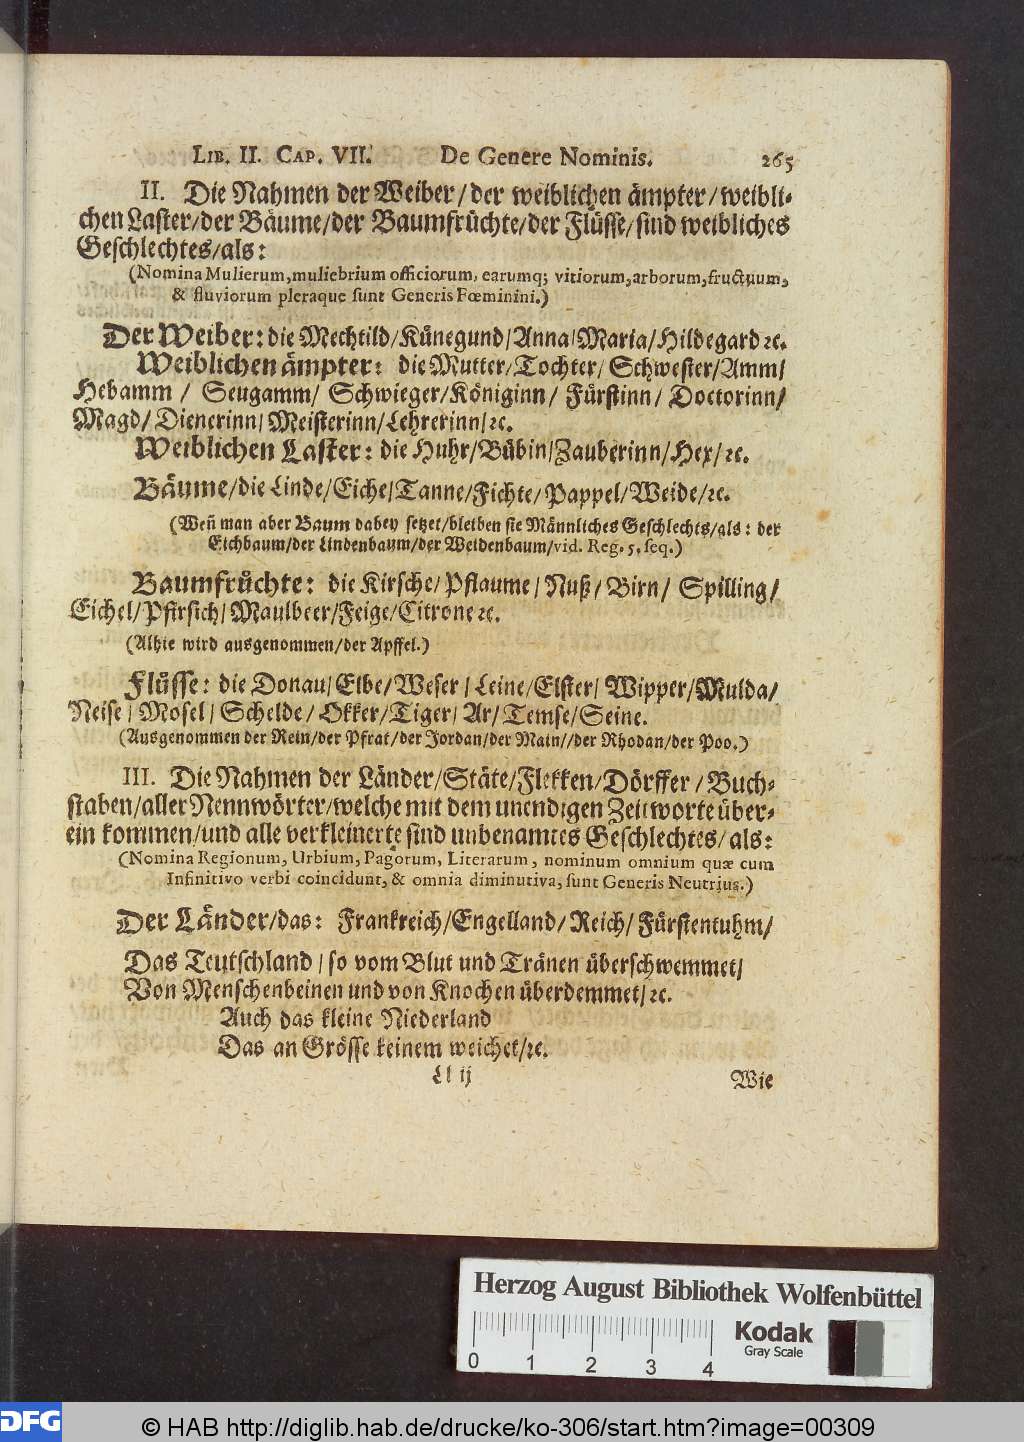 Lib. II. Cap. VII. De Genere Nominis. 265
II. Die Nahmen der Weiber/der weiblichen ämpter/weibli-
chen Laster/der Bäume/der Baumfrüchte/der Flüsse/sind weibliches
Geschlechtes/als:
(Nomina Mulierum, muliebrium officiorum, earumq; vitiorum, arborum, fructuum,
& fluviorum pleraque sunt Generis Fœminini.)
Der Weiber: die Mechtild/Künegund/Anna/Maria/Hildegard ꝛc.
Weiblichen ämpter: die Mutter/Tochter/Schwester/Amm/
Hebamm/Seugamm/Schwieger/Königinn/Fürstinn/Doctorinn/
Magd/Dienerinn/Meisterinn/Lehrerinn/ꝛc.
Weiblichen Laster: die Huhr/Bübin/Zauberinn/Hex/ꝛc.
Bäume/die Linde/Eiche/Tanne/Fichte/Pappel/Weide/ꝛc.
(Weñ man aber Baum dabey setzet/bleiben sie Männliches Geschlechts/als: der
Eichbaum/der Lindenbaum/der Weidenbaum/vid. Reg. 5. seq.)
Baumfrüchte: die Kirsche/Pflaume/Nuß/Birn/Spilling/
Eichel/Pfirsich/Maulbeer/Feige/Citrone ꝛc.
(Alhie wird ausgenommen/der Apffel.)
Flüsse: die Donau/Elbe/Weser/Leine/Elster/Wipper/Mulda/
Neise/Mosel/Schelde/Okker/Tiger/Ar/Temse/Seine.
(Ausgenommen der Rein/der Pfrat/der Jordan/der Main//der Rhodan/der Poo.)
III. Die Nahmen der Länder/Stäte/Flekken/Dörffer/Buch-
staben/aller Nennwörter/welche mit dem unendigen Zeitworte über-
ein kommen/und alle verkleinerte sind unbenamtes Geschlechtes/als:
(Nomina Regionum, Urbium, Pagorum, Literarum, nominum omnium quæ cum
Infinitivo verbi coincidunt, & omnia diminutiva, sunt Generis Neutrius.)
Der Länder/das: Frankreich/Engelland/Reich/Fürstentuhm/
Das Teutschland/so vom Blut und Tränen überschwemmet/
Von Menschenbeinen und von Knochen überdemmet/ꝛc.
Auch das kleine Niederland
Das an Grösse keinem weichet/ꝛc.
Ll ij Wie
Herzog August Bibliothek Wolfenbüttel
0 1 2 3 4
Kodak
Gray Scale
DFG © HAB http://diglib.hab.de/drucke/ko-306/start.htm?image=00309